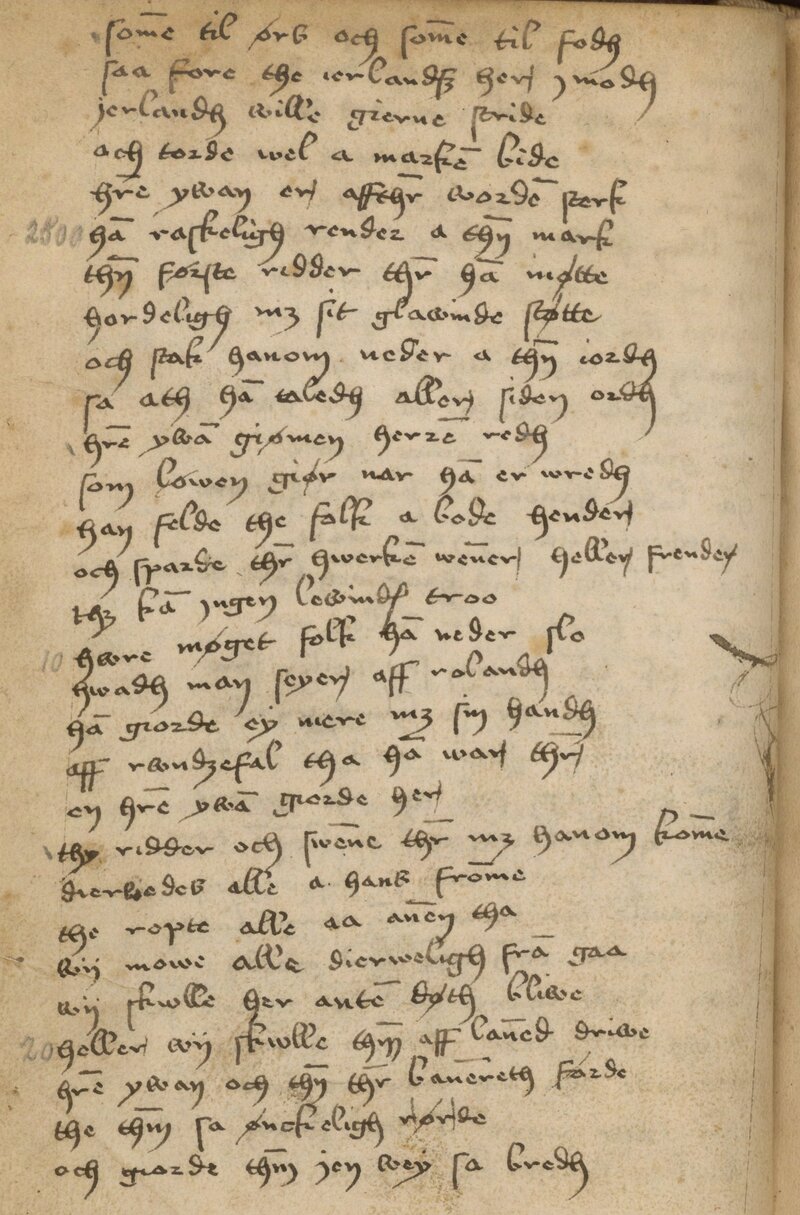 som̅e til ørs och som̅e til fodh
saa fore the ierlandß her j modh
jerlandh wille gierne stride
och torde wel a marke̅ bide
hr̅e ywan er affthr̅ worde̅ sterk
2800 ha̅ raskeligh render a thn̅ mark
thn̅ første ridder thr̅ ha̅ møtte
hordeligh mꝫ sit glawinde støtte
och stak hanom neder a thn̅ iordh
sa ath ha̅ taledh aller siden ordh
hr̅e ywa̅ giømen herre̅ redh
som lowen giør nar ha̅ er wredh
han felde the folk a bode hender
och sparde thr̅ hwerke̅ wen̅er heller frender
thꝫ ka̅ jngen lewindß troo
10 hwre møget folk ha̅ neder slo
hwadh man seyer aff rolandh
ha̅ giorde ey mere mꝫ sin handh
aff rwndzefal tha ha̅ war thr̅
en hr̅e ywa̅ giorde her
thy ridder och swen̅e thr̅ mꝫ hanom kom̅e
dierwedes alle a hans from̅e
the ropte alle aa an̅en tha
wij mowe alle dierweligh fra̅ gaa
wij skwlle her ante̅ døth bliwe
20 heller wij skwlle thm̅ aff lan̅ed driwe
hr̅e ywan och thn̅ thr̅ ban̅ereth førde
the thm̅ sa ønckeligh rørde
och giorde thm̅ jen wey sa bredh